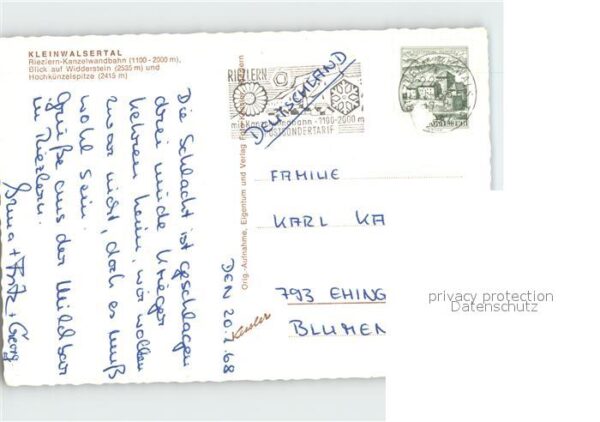 KLEINWALSERTAL
Riezlern-Kanzelwandbahn (1100-2000 m),
Blick auf Widderstein (2535 m) und
Hochkünzelspitze (2415 m)
Die Schlacht ist geschlagen
drei müde Krieger
kehren heim, wir wollen
zwar nicht, doch es muß
wohl sein.
Grüße aus der Mildbar
in Riezlern.
Irma + Fritz + Georg
DEN 20.2.68
Orig.-Aufnahme, Eigentum und Verlag Foto Kessler, Riezlern
Kessler
RIEZLERN
1100-2000 m
DEUTSCHLAND
FAMILIE
KARL KA
793 EHING
BLUMEN
privacy protection
Datenschutz